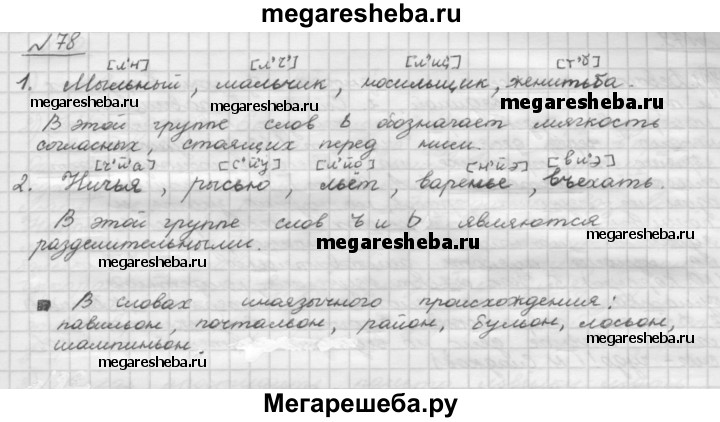 megaresheba.ru
№78
[л'н] [л'ч'] [л'щ'] [т'б]
1. Мыльный, мальчик, носильщик, женитьба.
megaresheba.ru megaresheba.ru megaresheba.ru
В этой группе слов ь обозначает мягкость
согласных, стоящих перед ним.
[ч'й'а] [с'й'у] [л'й'о] [н'й'э] [вй'э]
2. Ничья, рысью, льёт, варенье, въехать.
megaresheba.ru megaresheba.ru
В этой группе слов ъ и ь являются
разделительными.
megaresheba.ru megaresheba.ru megaresheba.ru
В словах иноязычного происхождения:
павильон, почтальон, район, бульон, лосьон,
шампиньон.
megaresheba.ru megaresheba.ru
Мегарешеба.ру